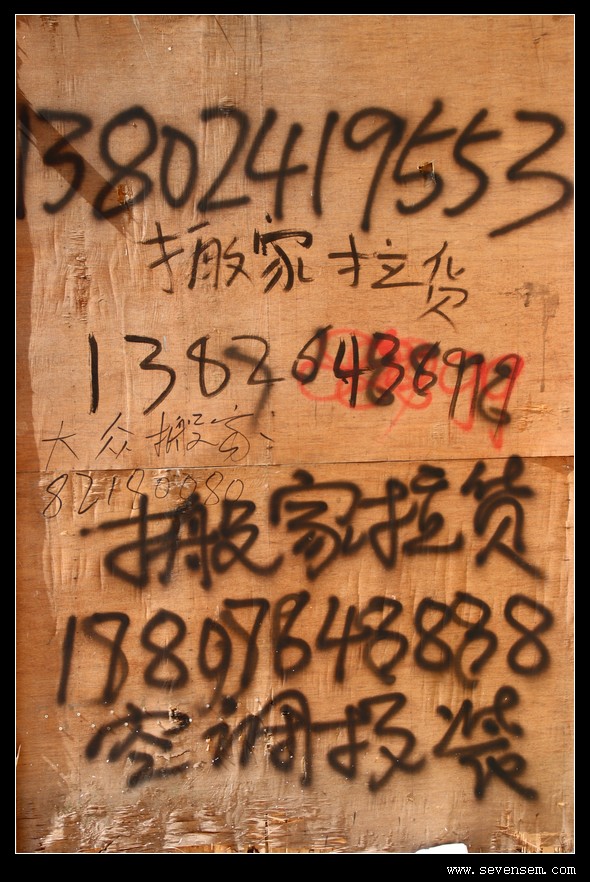 13802419553
搬家拉货
大众搬家:
82190080
搬家拉货
空调拆装
www.sevensem.com